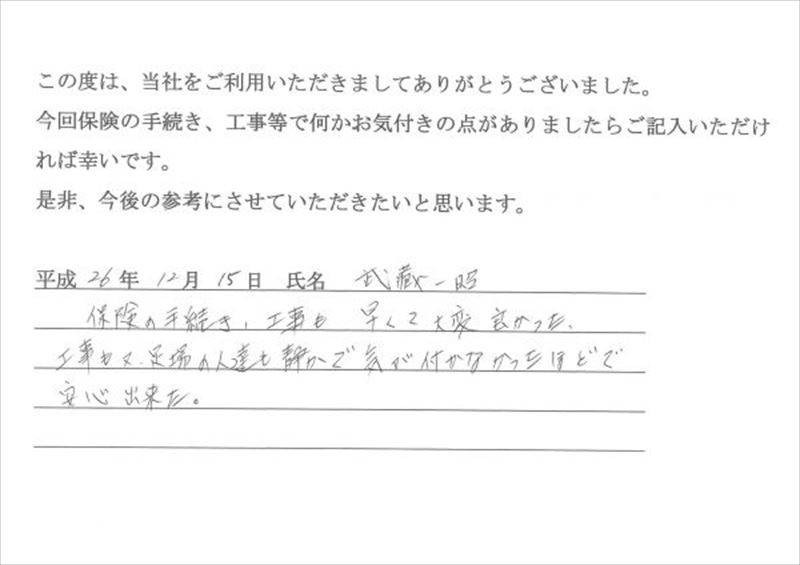 この度は、当社をご利用いただきましてありがとうございました。
今回保険の手続き、工事等で何かお気付きの点がありましたらご記入いただけ
れば幸いです。
是非、今後の参考にさせていただきたいと思います。
平成 26年 12月 15日 氏名 武藏一昭
保険の手続き、工事も 早くて大変良かった、
工事も又、足場の人達も静かで気が付かなかったほどで
安心出来た。